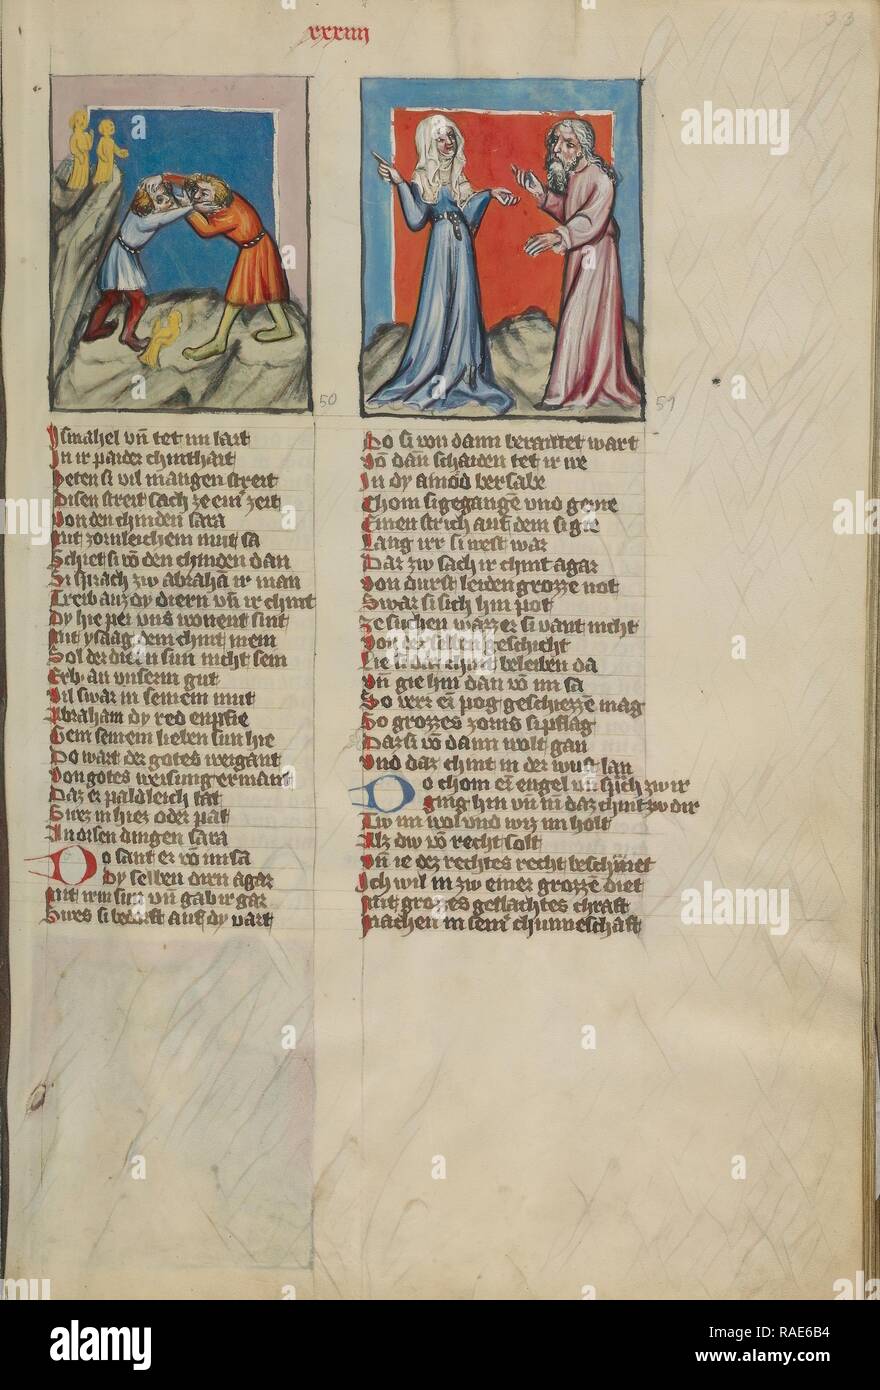 xxxiiii
33
50
51
Ismahel vn̄ tet im lait
In ir paider chinthait
Heten si vil mangen streit
Disen streit sach ze ein͛ zeit
Von den chinden sara
Mit zornleichem mut sa
Schiet si vō den chinden dan
Si sprach zw abrahā ir man
Treib auz dy diern vn̄ ir chint
Dy hie per vns wonent sint
Mit ysaag dem chint mein
Sol der diern sun nicht sein
Erb an vnserm gut
Vil swar in seinem mut
Abraham dy red enpfie
Gein seinem lieben sun hie
Do wart der gotes weigant
Von gotes weisung ermant
Daz er paldleich tat
Swez in hiez oder pat
An disen dingen sara
Do sant er vō im sa
dy selben diern agar
Mit irm sun vn̄ gab ir gar
Swes si bedorft auf dy vart
Do si von dann beraittet wart
Vō dan̄ schaiden tet ir we
In dy ainōd bersabe
Chom si gegangē vnd gerne
Einen strich auf dem si gie
Lang irr si west war
Daz zw sach ir chint agar
Von durst leiden grozze not
Swar si sich hin pot
Ze suchen wazzer si vant nicht
Von der selben geschicht
Lie si daz chint beleiben da
Vn̄ gie hin dan vō im sa
So verr ei͛ pog geschiezzē mag
So grozzes zorns si pflag
Daz si vō dann wolt gan
Vnd daz chint in der wust lan
Do chom ei͛ engel vn̄ sp̄ch zw ir
ging hin vn̄ nī daz chint zw dir
Tw im wol vnd wiz im holt
Alz dw vō recht solt
Vn̄ ie dez rechtes recht beschūet
Ich wil in zw einer grozzē diet
Mit grozzes geslachtes chraft
Machen in sein͛ chunneschaft
alamy
alamy stock photo
RAE6B4
www.alamy.com